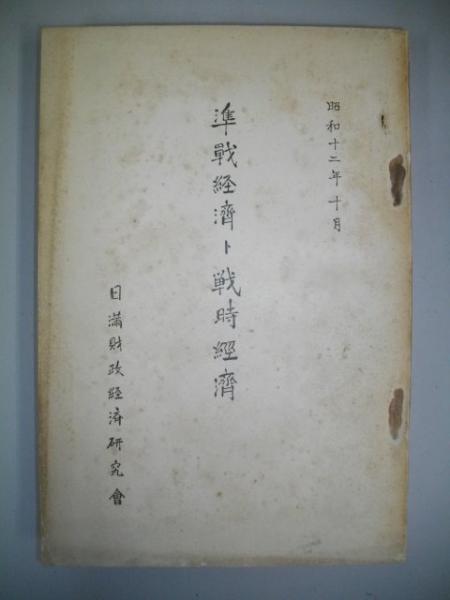 昭和十二年十月
準戰経濟ト戦時經濟
日満財政経済研究會